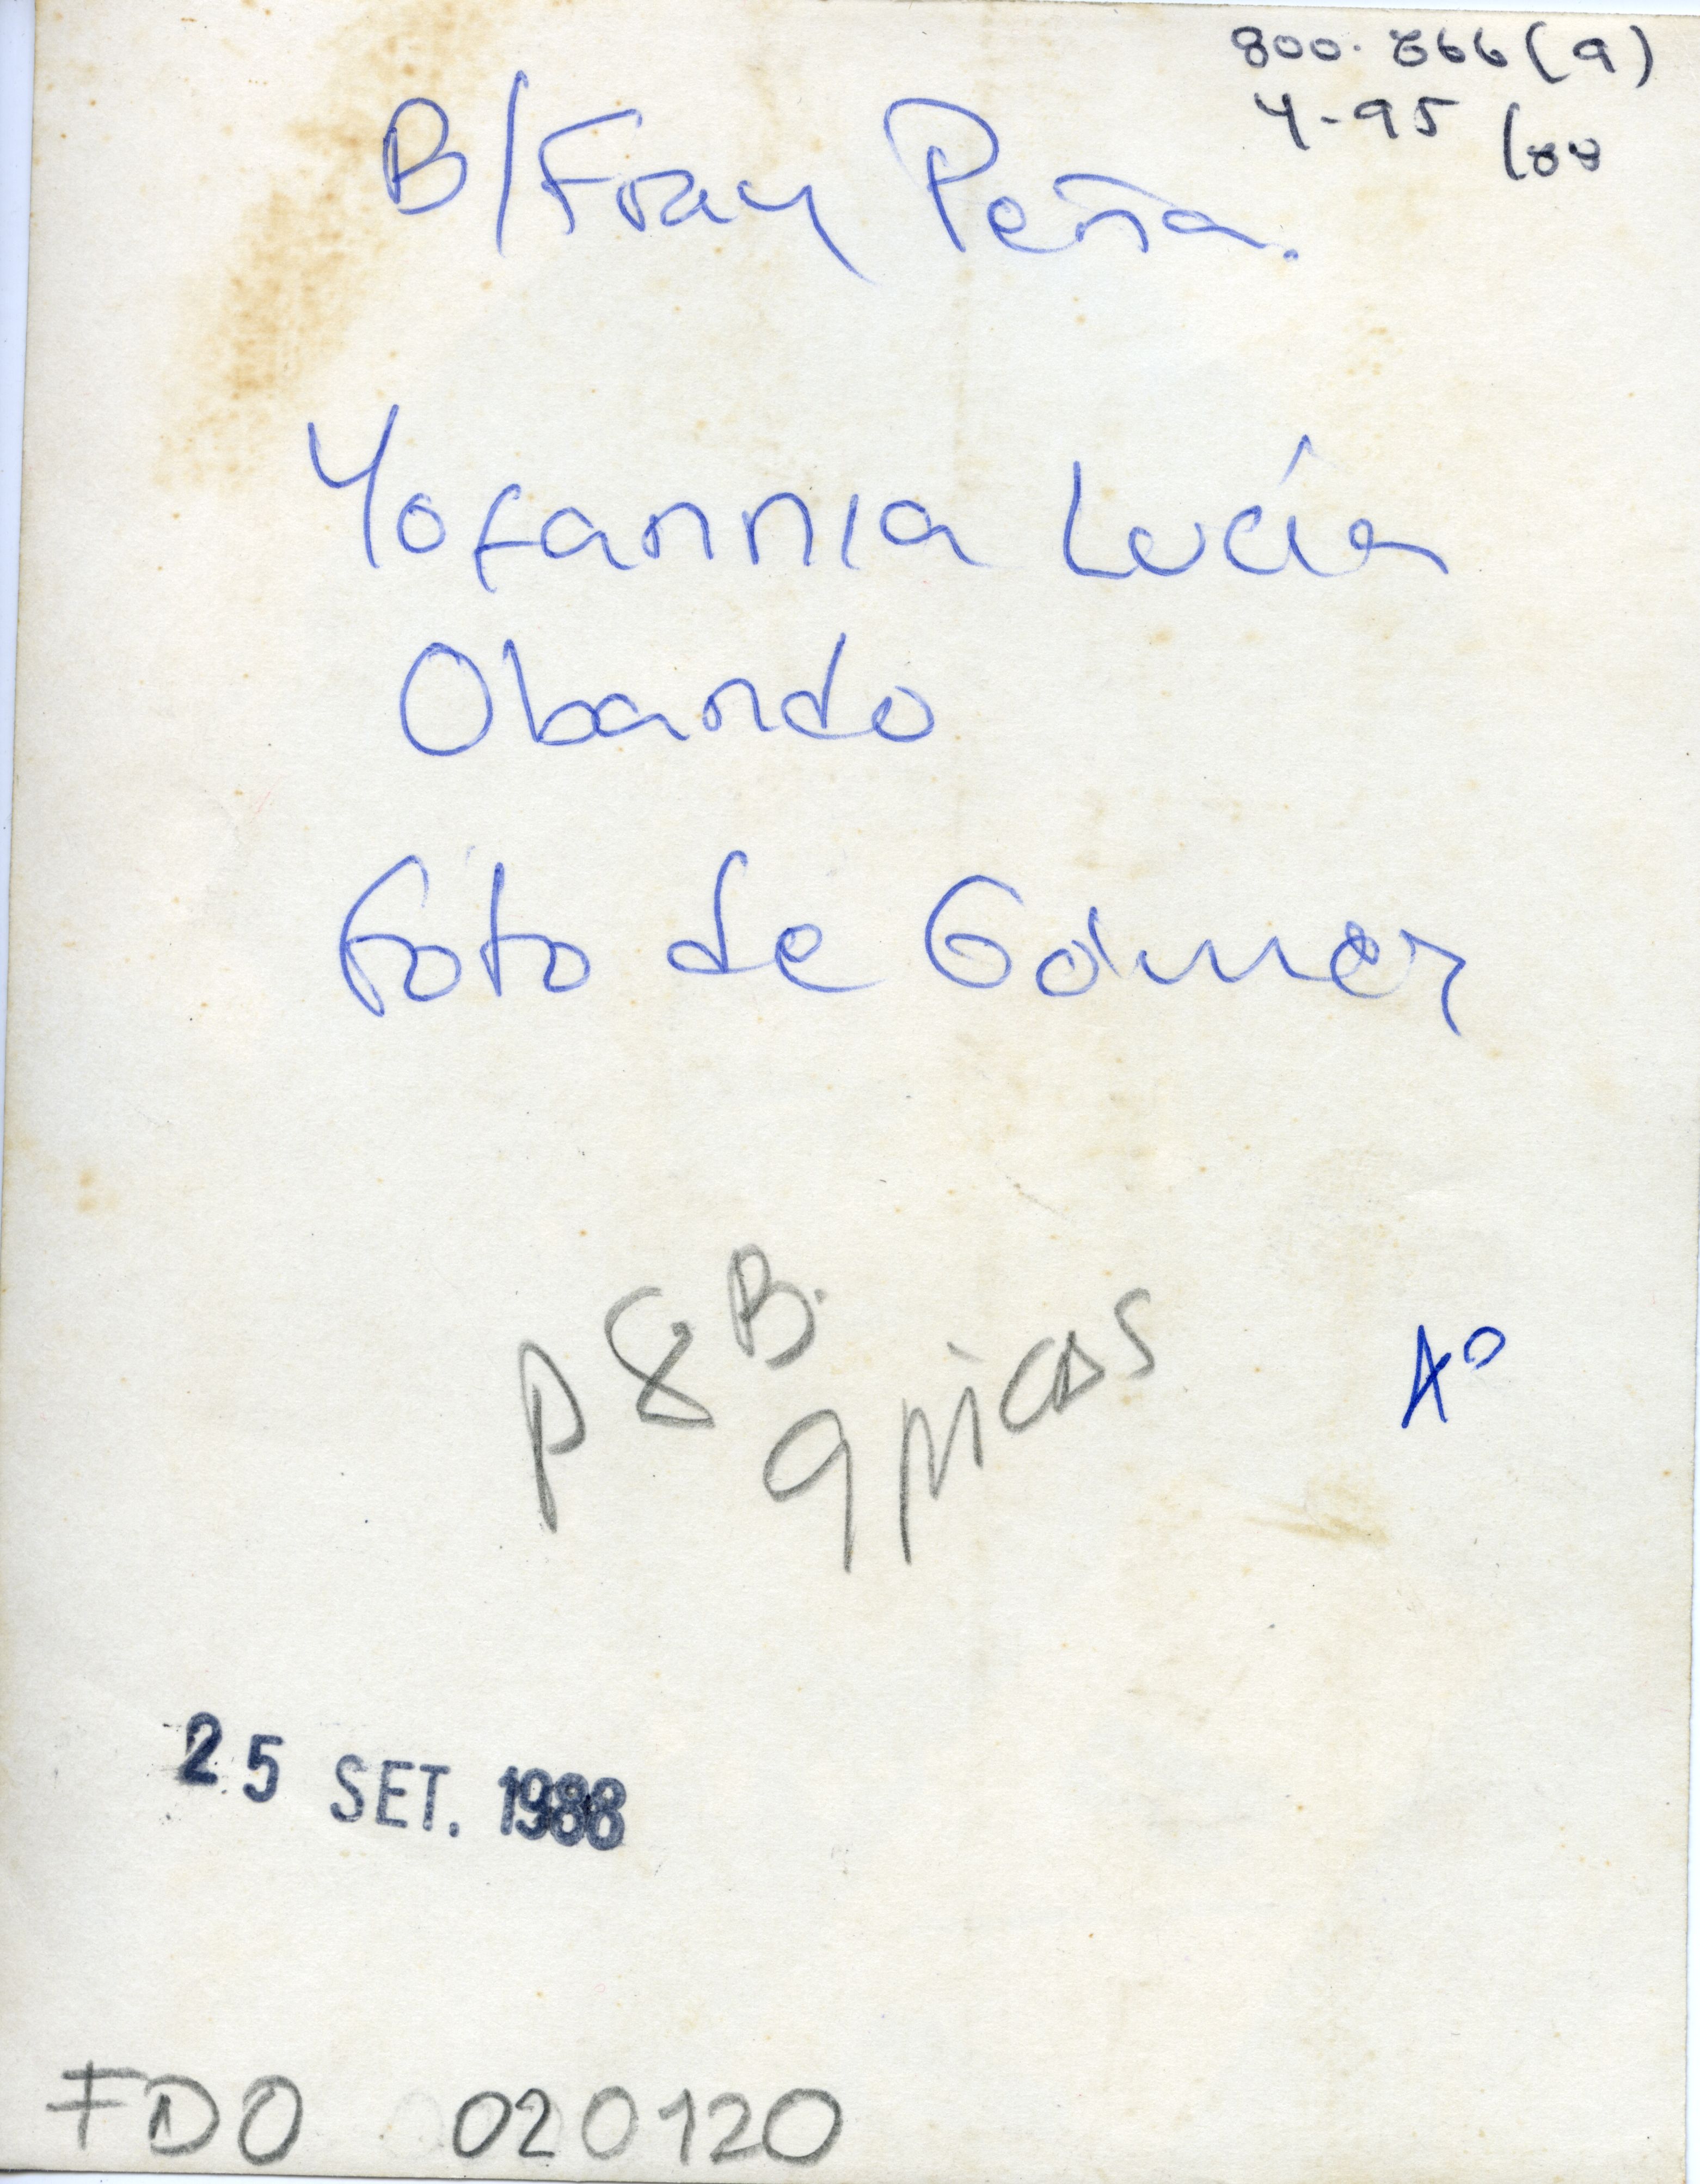 800.866 (a)
4-95 (88
B/Fray Peña.
Yofannia Lucía
Obando
Foto de Gómez
p 8 B.
9 picas
A°
25 SET. 1988
FDO 020120